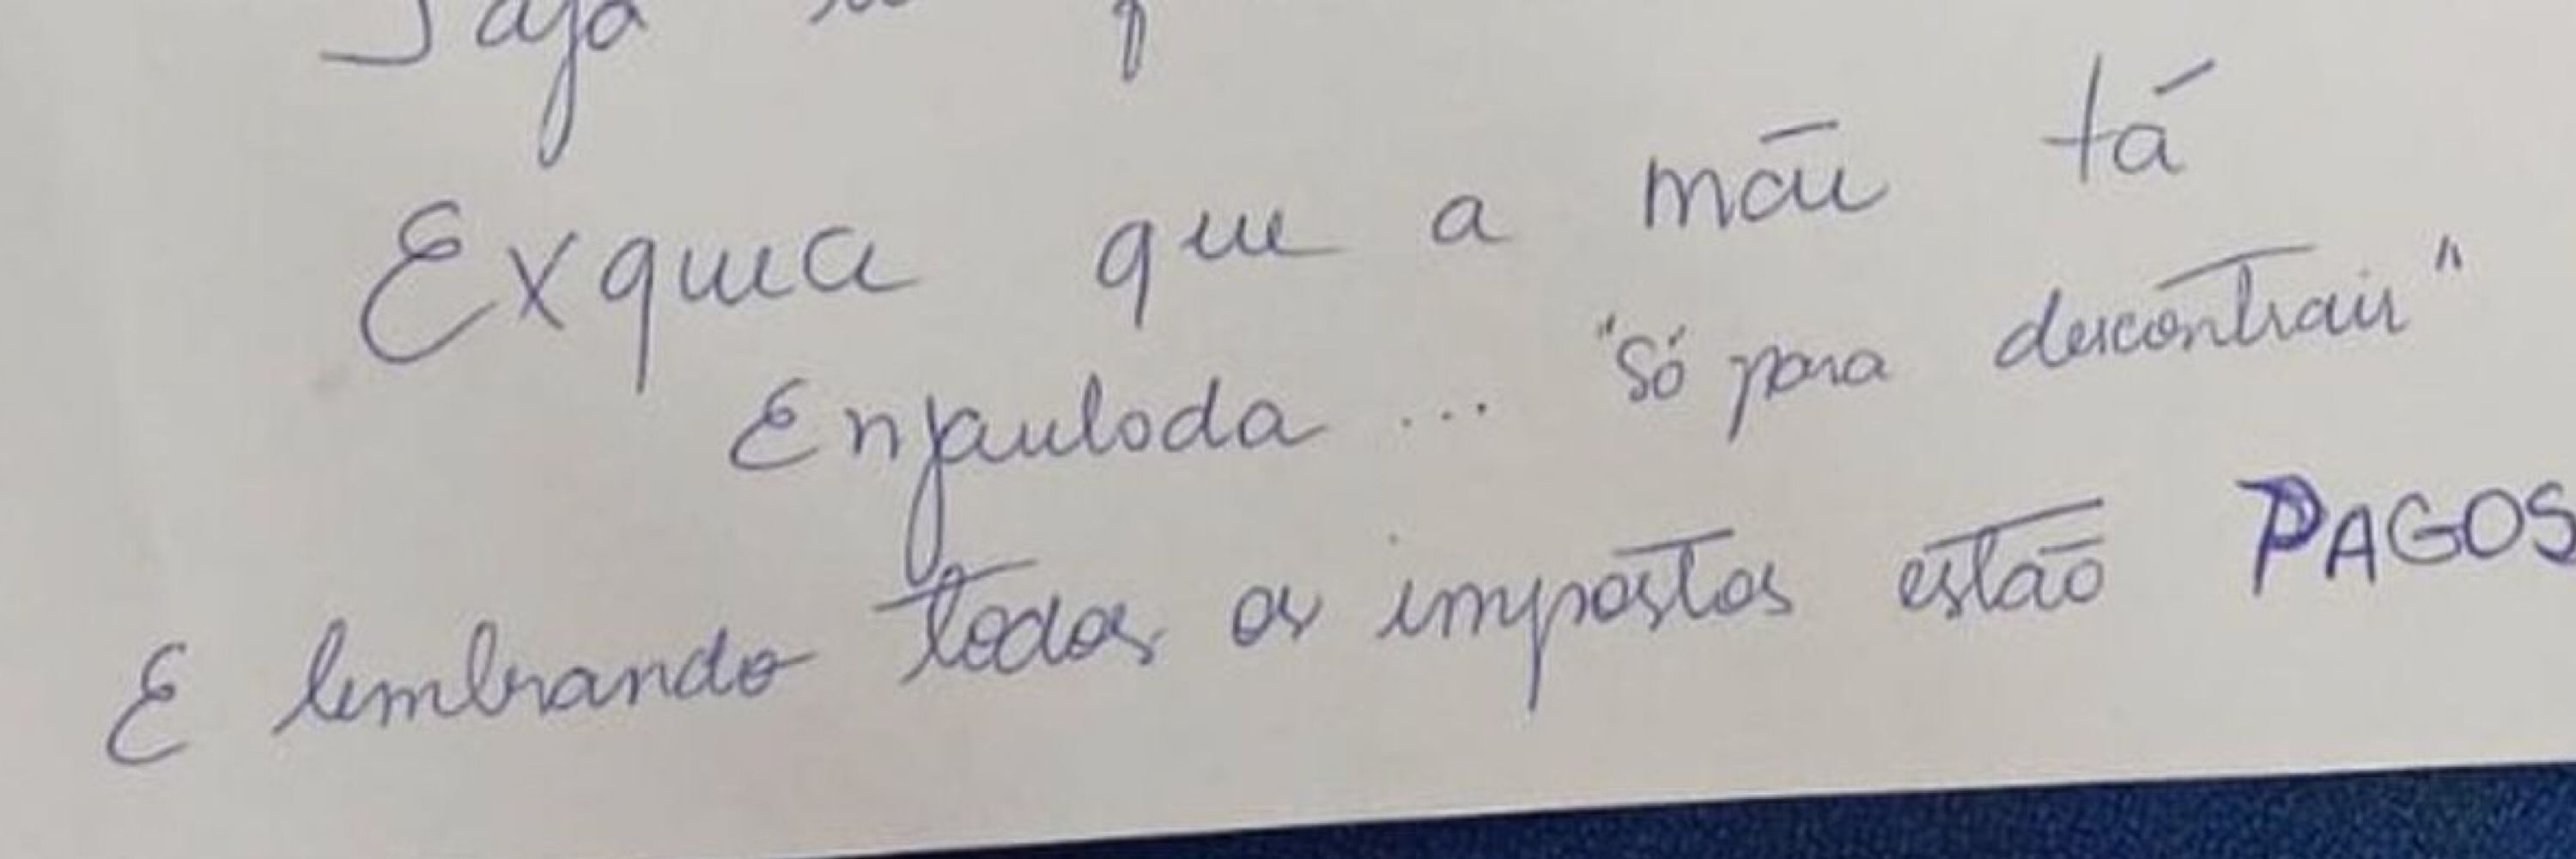 Exquea que a mãe tá
Enjaulada ... "Só para descontrair"
E lembrando todos os impostos estão PAGOS